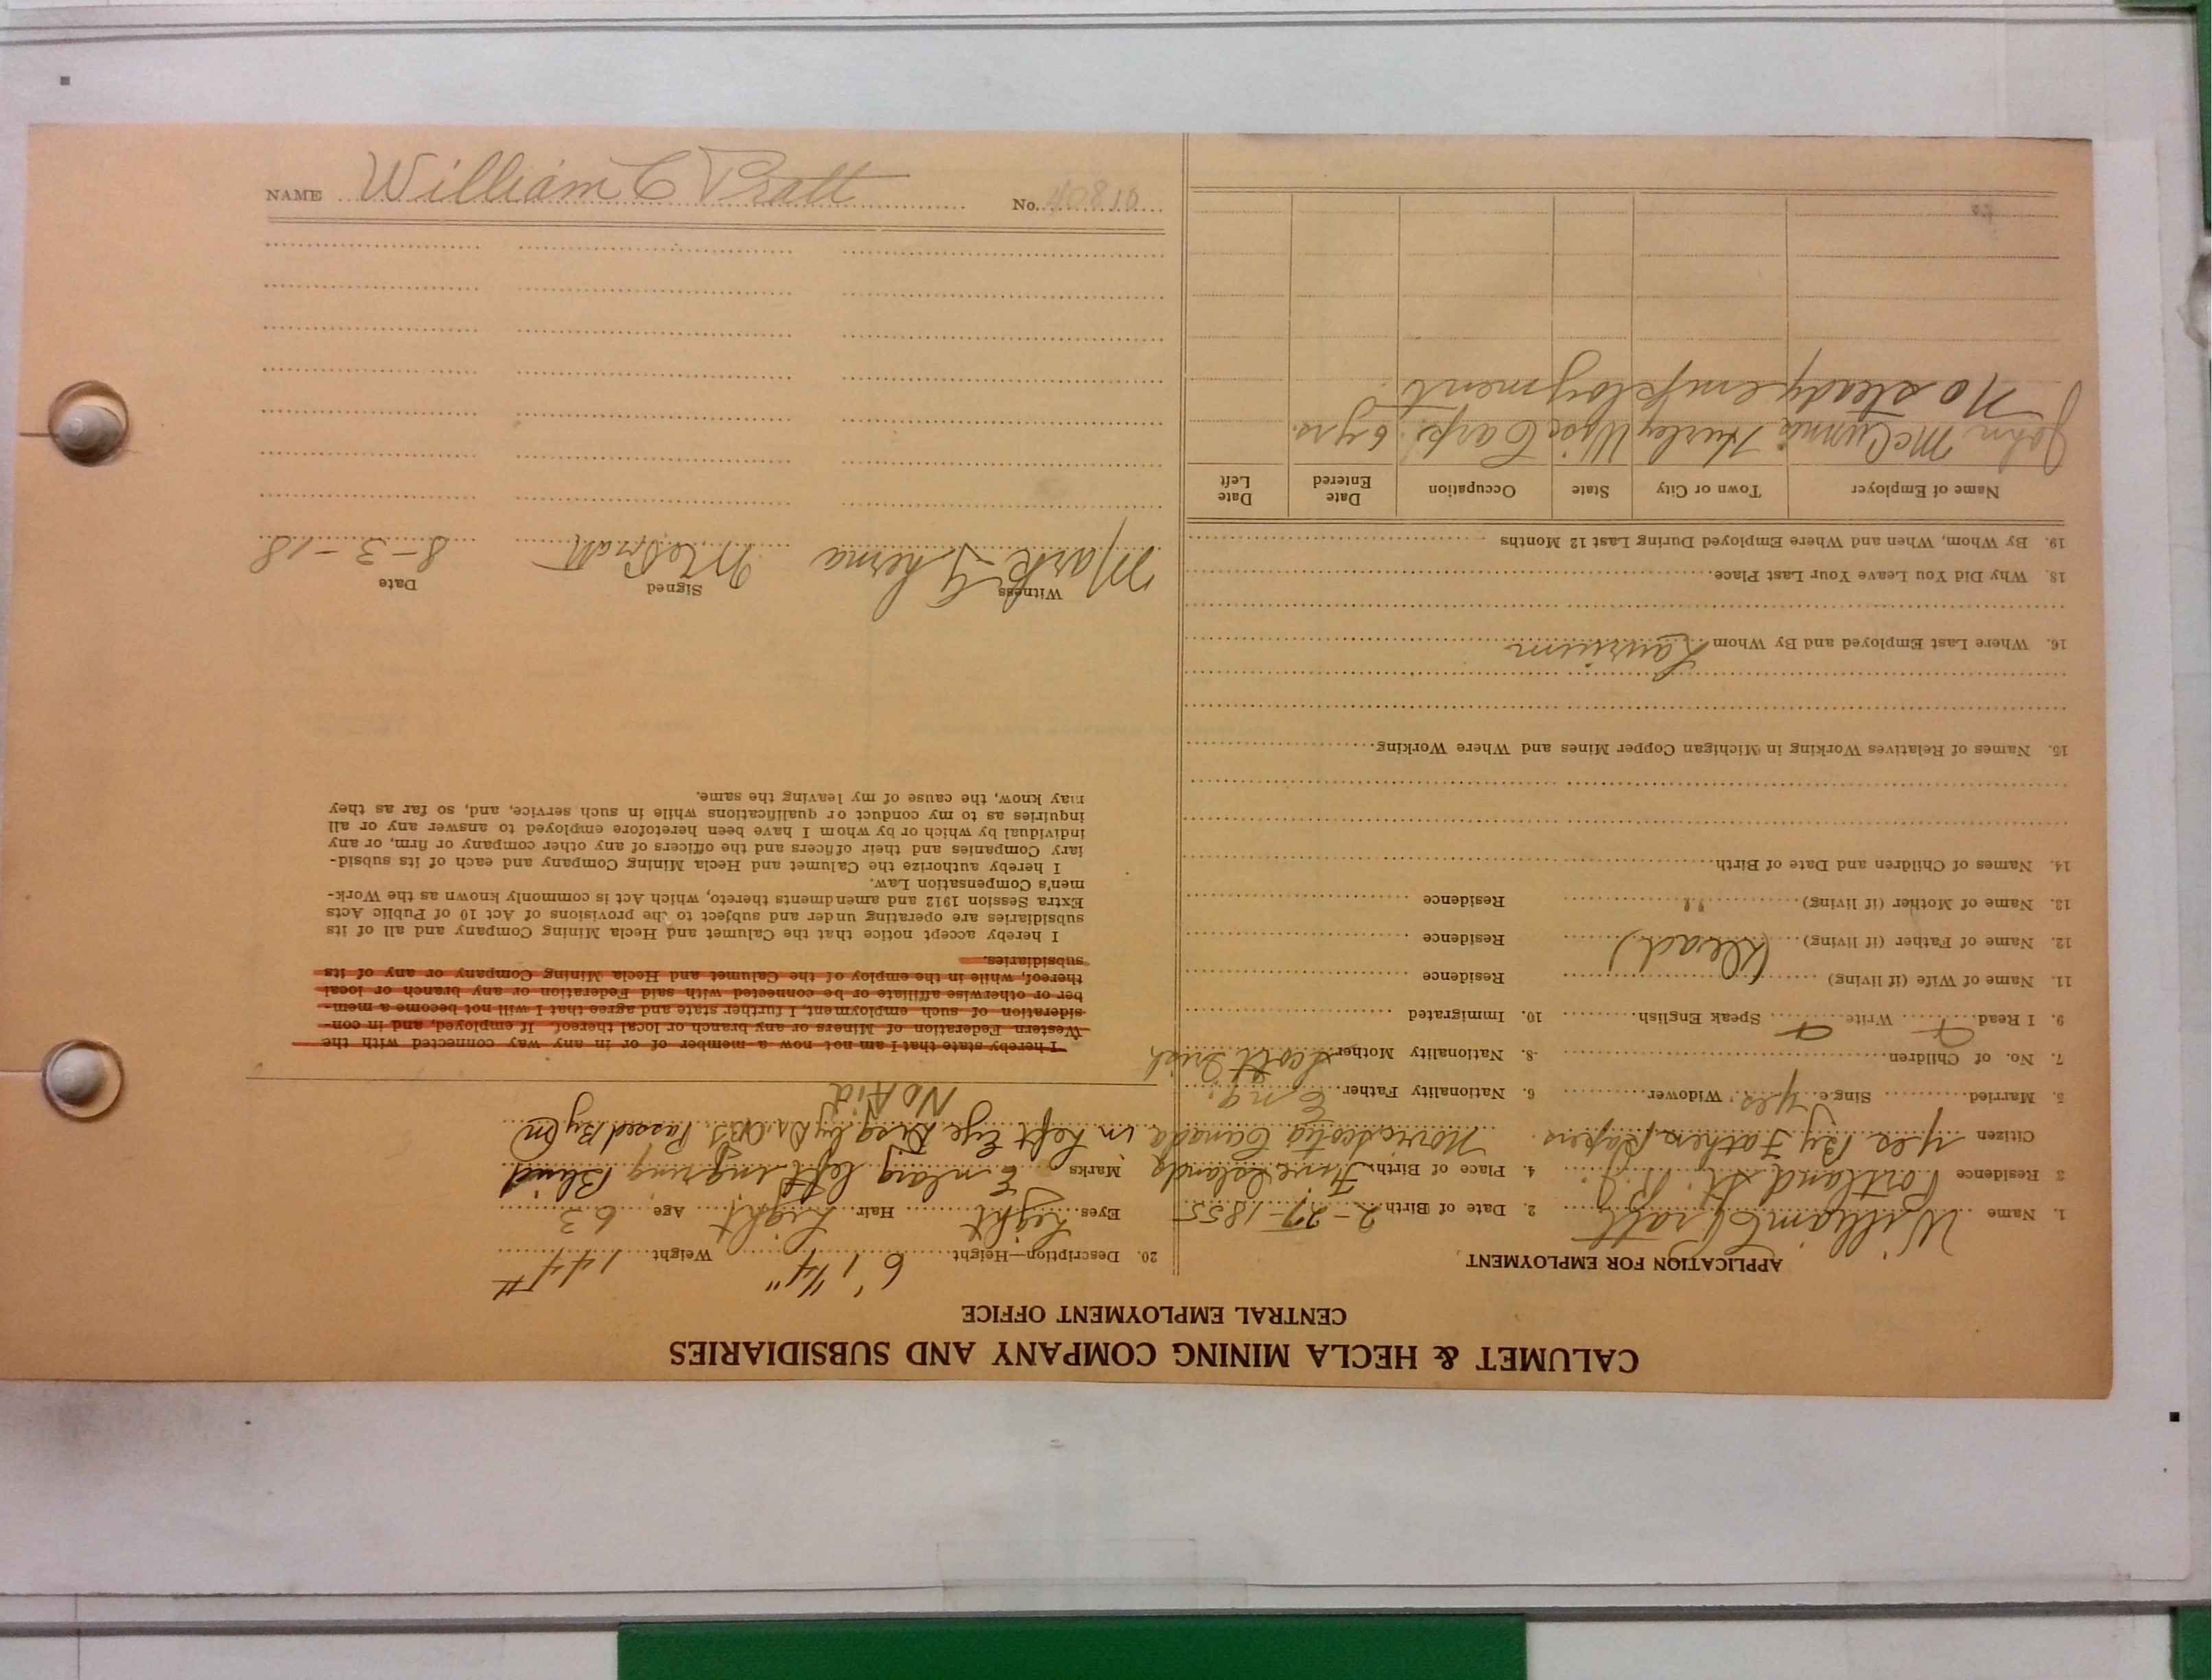 CALUMET & HECLA MINING COMPANY AND SUBSIDIARIES
CENTRAL EMPLOYMENT OFFICE
APPLICATION FOR EMPLOYMENT
1. Name William C Pratt
2. Date of Birth 2-27-1855
3 Residence Portland St.
4. Place of Birth Five Islands
Citizen Yes By Fathers Papers
Novia Scotia Canada
5. Married Single yes Widower
6. Nationality Father Eng.
7. No. of Children
8. Nationality Mother Scott Irish
9. I Read Write Speak English
10. Immigrated
11. Name of Wife (if living) Residence
12. Name of Father (if living) (Dead) Residence
13. Name of Mother (if living) " Residence
14. Names of Children and Date of Birth
15. Names of Relatives Working in Michigan Copper Mines and Where Working
16. Where Last Employed and By Whom Laurium
18. Why Did You Leave Your Last Place
19. By Whom, When and Where Employed During Last 12 Months
Name of Employer Town or City State Occupation Date Entered Date Left
John Hurley Wisc Carp. 6 yrs.
No steady employment
20. Description—Height 6' 1 1/4" Weight 144#
Eyes Light Hair Light Age 63
Marks Enlarg left ing ring Blind
in Left Eye Disq by Dr. Passed By
No Aid
I hereby state that I am not now a member of or in any way connected with the
Western Federation of Miners or any branch or local thereof. If employed, and in con-
sideration of such employment, I further state and agree that I will not become a mem-
ber or otherwise affiliate or be connected with said Federation or any branch or local
thereof, while in the employ of the Calumet and Hecla Mining Company or any of its
subsidiaries.
I hereby accept notice that the Calumet and Hecla Mining Company and all of its
subsidiaries are operating under and subject to the provisions of Act 10 of Public Acts
Extra Session 1912 and amendments thereto, which Act is commonly known as the Work-
men's Compensation Law.
I hereby authorize the Calumet and Hecla Mining Company and each of its subsid-
iary Companies and their officers and the officers of any other company or firm, or any
individual by which or by whom I have been heretofore employed to answer any or all
inquiries as to my conduct or qualifications while in such service, and, so far as they
may know, the cause of my leaving the same.
Witness Signed Date
Mark Pratt 8-3-18
NAME William C Pratt No. 40810